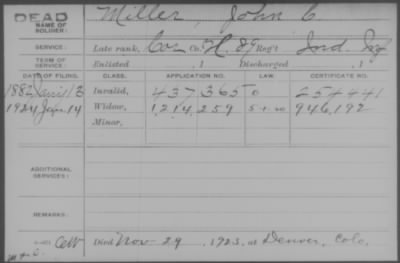 DEAD
NAME OF SOLDIER: Miller, John C.
SERVICE: Late rank, Cor Co. H, 89 Reg't Ind. Inf
TERM OF SERVICE: Enlisted , 1 Discharged , 1
DATE OF FILING. CLASS. APPLICATION NO. LAW. CERTIFICATE NO.
1882 13 Invalid, 437,365 254441
1924 Jan. 14 Widow, 1,214,259 5-1-20 946,192
Minor,
ADDITIONAL SERVICES:
REMARKS:
Died Nov 29, 1923, at Denver, Colo.